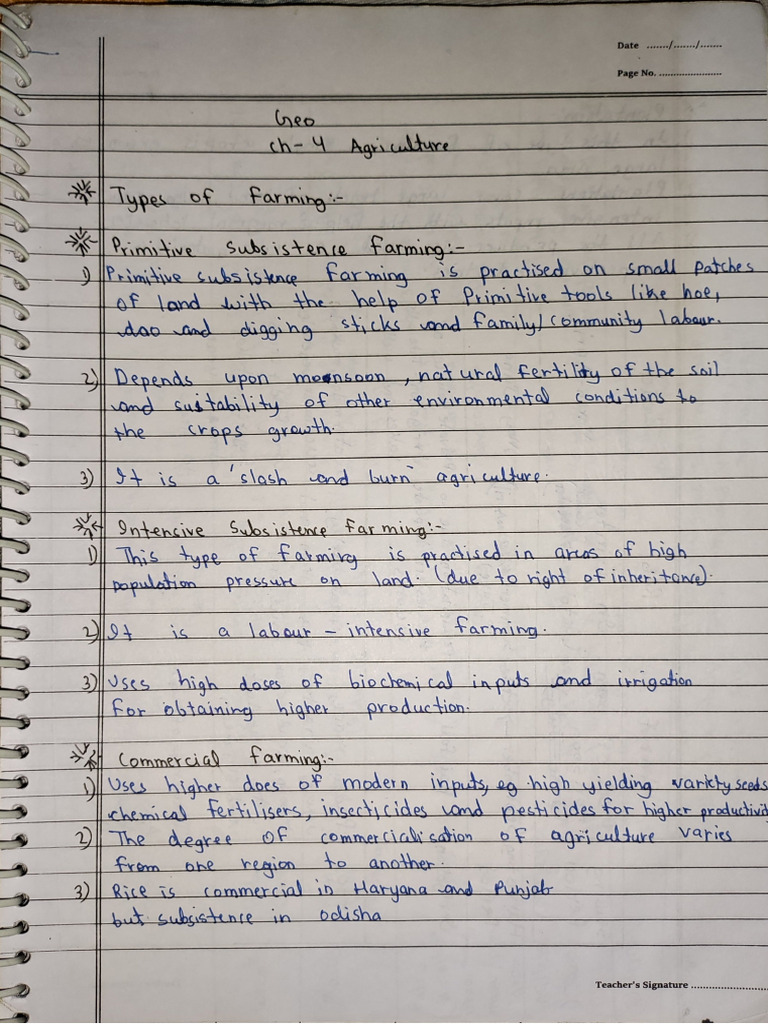 Date ......./......./.......
Page No. ......................
Geo
ch- 4 Agriculture
Types of farming:-
Primitive subsistence farming:-
1) Primitive subsistence farming is practised on small patches
of land with the help of Primitive tools like hoe,
dao and digging sticks and family/community labour.
2) Depends upon monsoon, natural fertility of the soil
and suitability of other environmental conditions to
the crops growth.
3) It is a 'slash and burn' agriculture.
Intensive Subsistence farming:-
1) This type of farming is practised in areas of high
population pressure on land. (due to right of inheritance).
2) It is a labour - intensive farming.
3) Uses high doses of biochemical inputs and irrigation
for obtaining higher production.
Commercial farming:-
1) Uses higher does of modern inputs, eg high yielding variety seeds
chemical fertilisers, insecticides and pesticides for higher productivit
2) The degree of commercialisation of agriculture varies
from one region to another.
3) Rice is commercial in Haryana and Punjab
but subsistence in odisha
Teacher's Signature ...........................